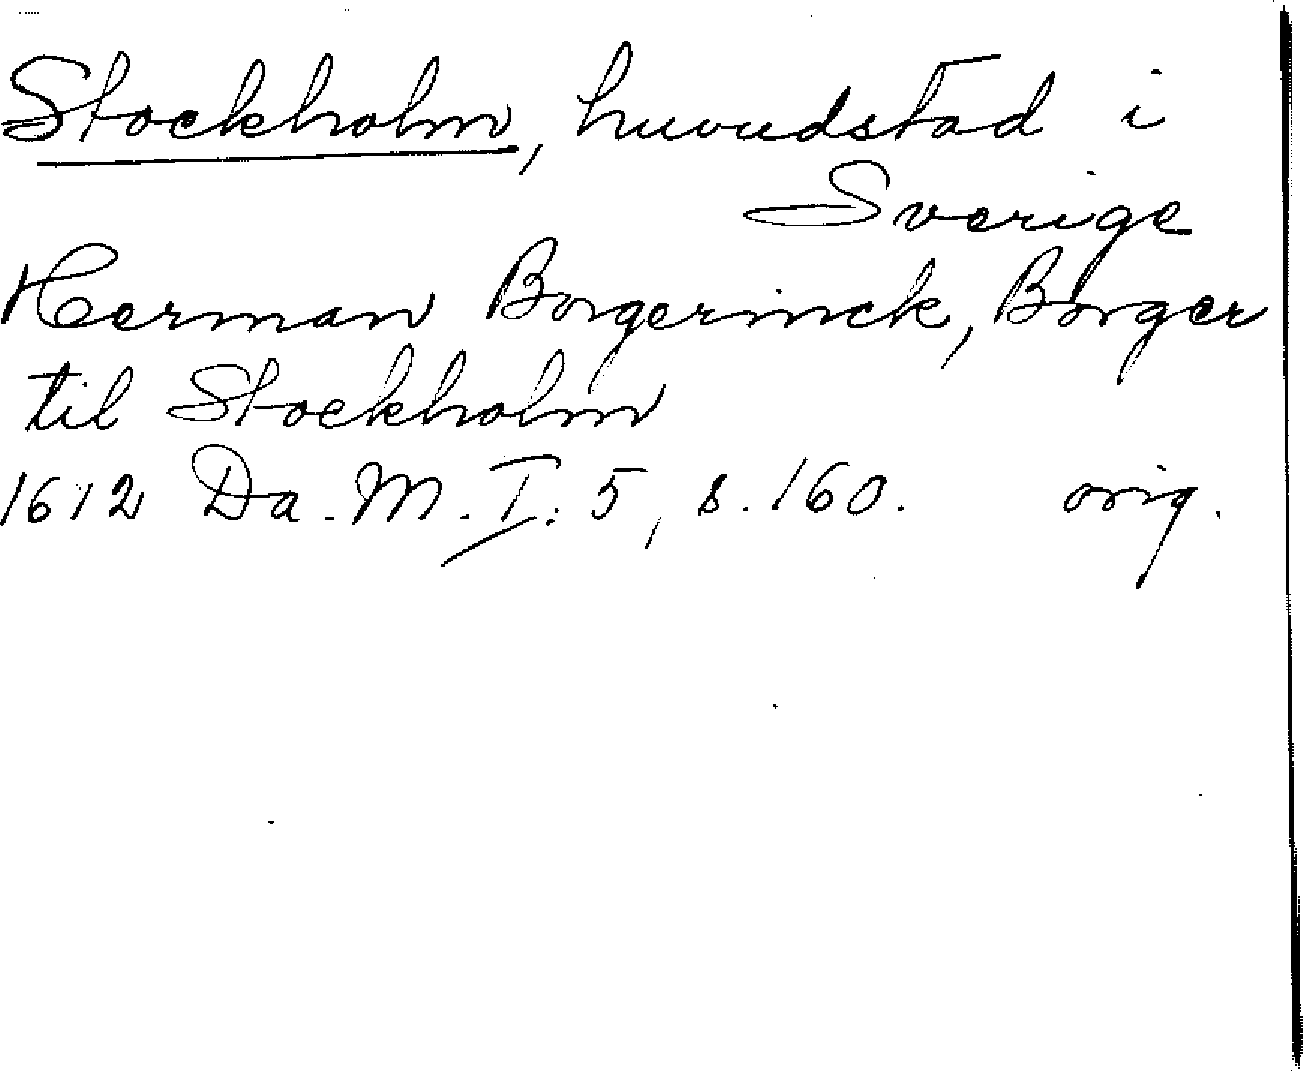 Stockholm, huvudstad i
Sverige
Herman Borgerinck, Borger
til Stockholm
1612 Da. M. I: 5, s. 160. orig.